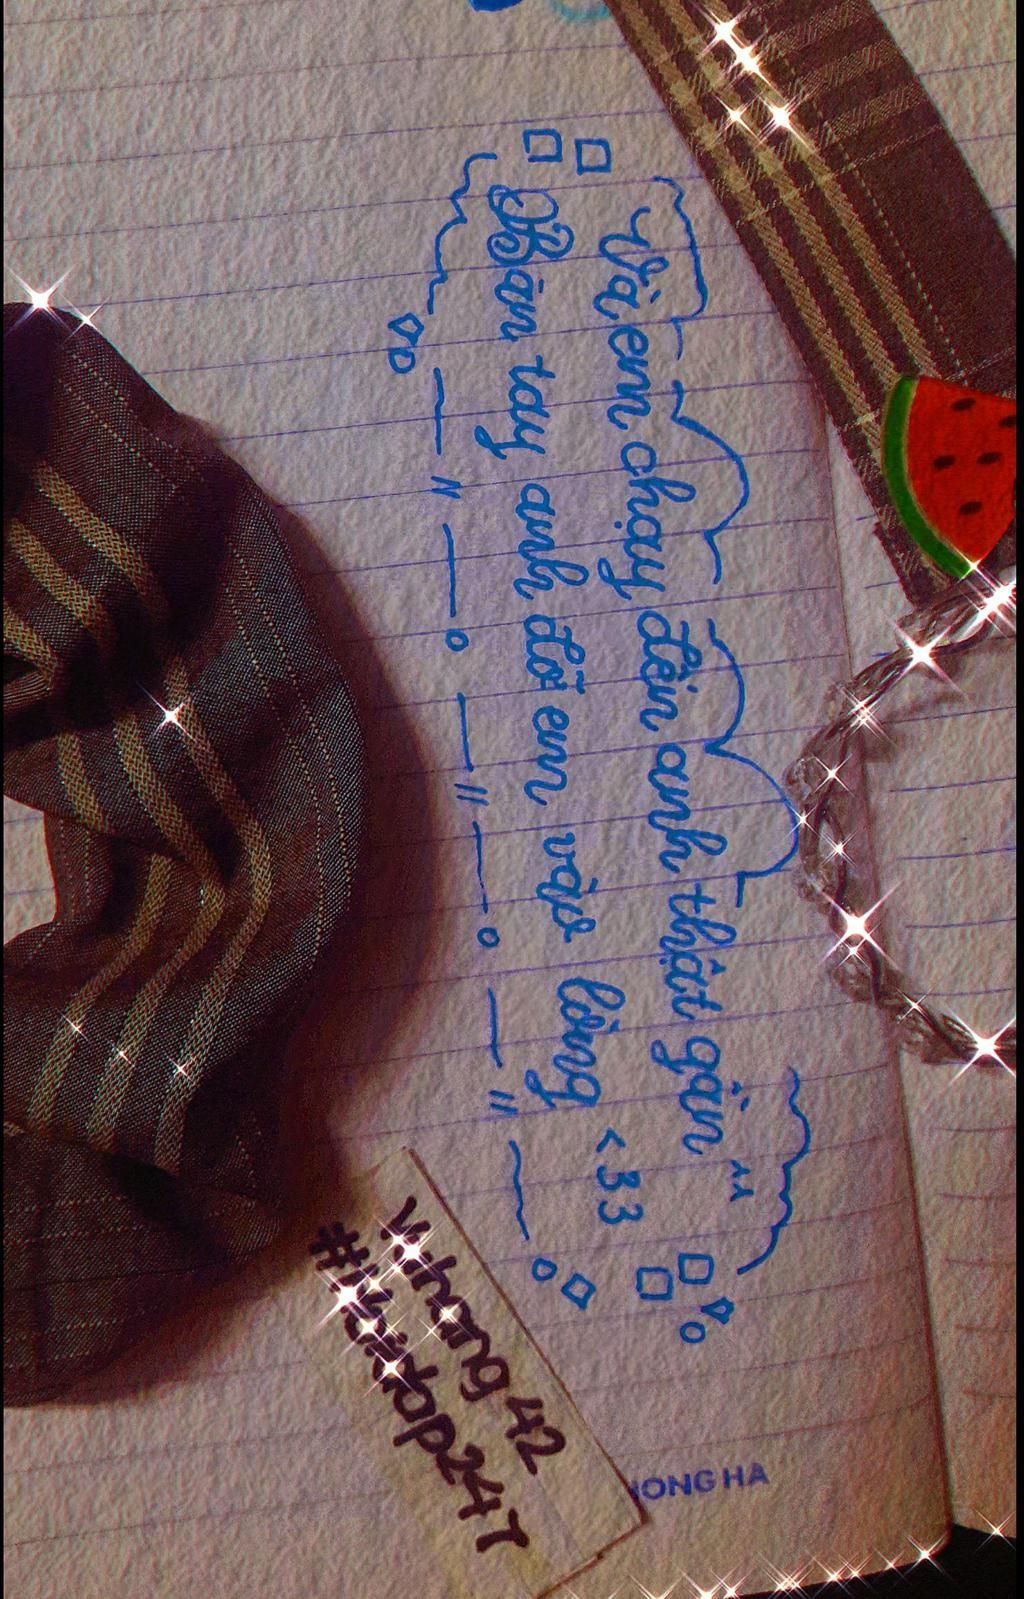 Và em chạy đến anh thật gần "
Bàn tay anh đỡ em vào lòng <33
HONG HA